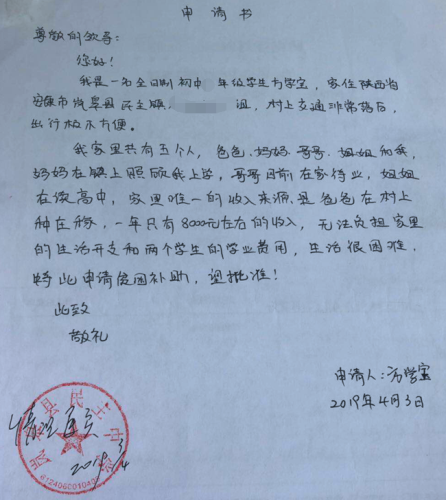 申请书
尊敬的领导:
您好!
我是一名全日制初中一年级学生方学宝,家住陕西省
安康市岚皋县民主镇 组,村上交通非常落后,
出行极不方便。
我家里共有五个人,爸爸、妈妈、哥哥、姐姐和我,
妈妈在镇上照顾我上学,哥哥目前在家待业,姐姐
在读高中,家里唯一的收入来源是爸爸在村上
种庄稼,一年只有8000元左右的收入,无法负担家里
的生活开支和两个学生的学业费用,生活很困难,
特此申请贫困补助,望批准!
此致
敬礼
申请人:方学宝
2019年4月3日
岚皋县民主中学
情况属实
2019.3/4
612406001040